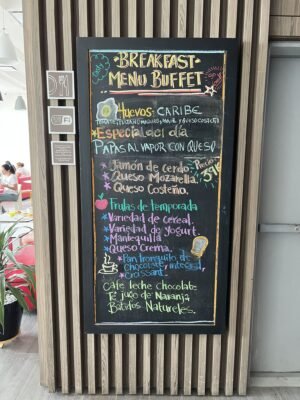 BREAKFAST
MENU BUFFET
Huevos CARIBE
Especial del día
PAPAS AL VAPOR CON QUESO
Jamón de cerdo
Queso Mozarella
Queso Costeño
Frutas de temporada
Variedad de cereal.
Variedad de yogurt.
Mantequilla
Queso Crema.
Pan tronquito de
chocolate, integral,
croissant.
Cafe leche chocolate
Té jugo de Naranja
Batidos Naturales.